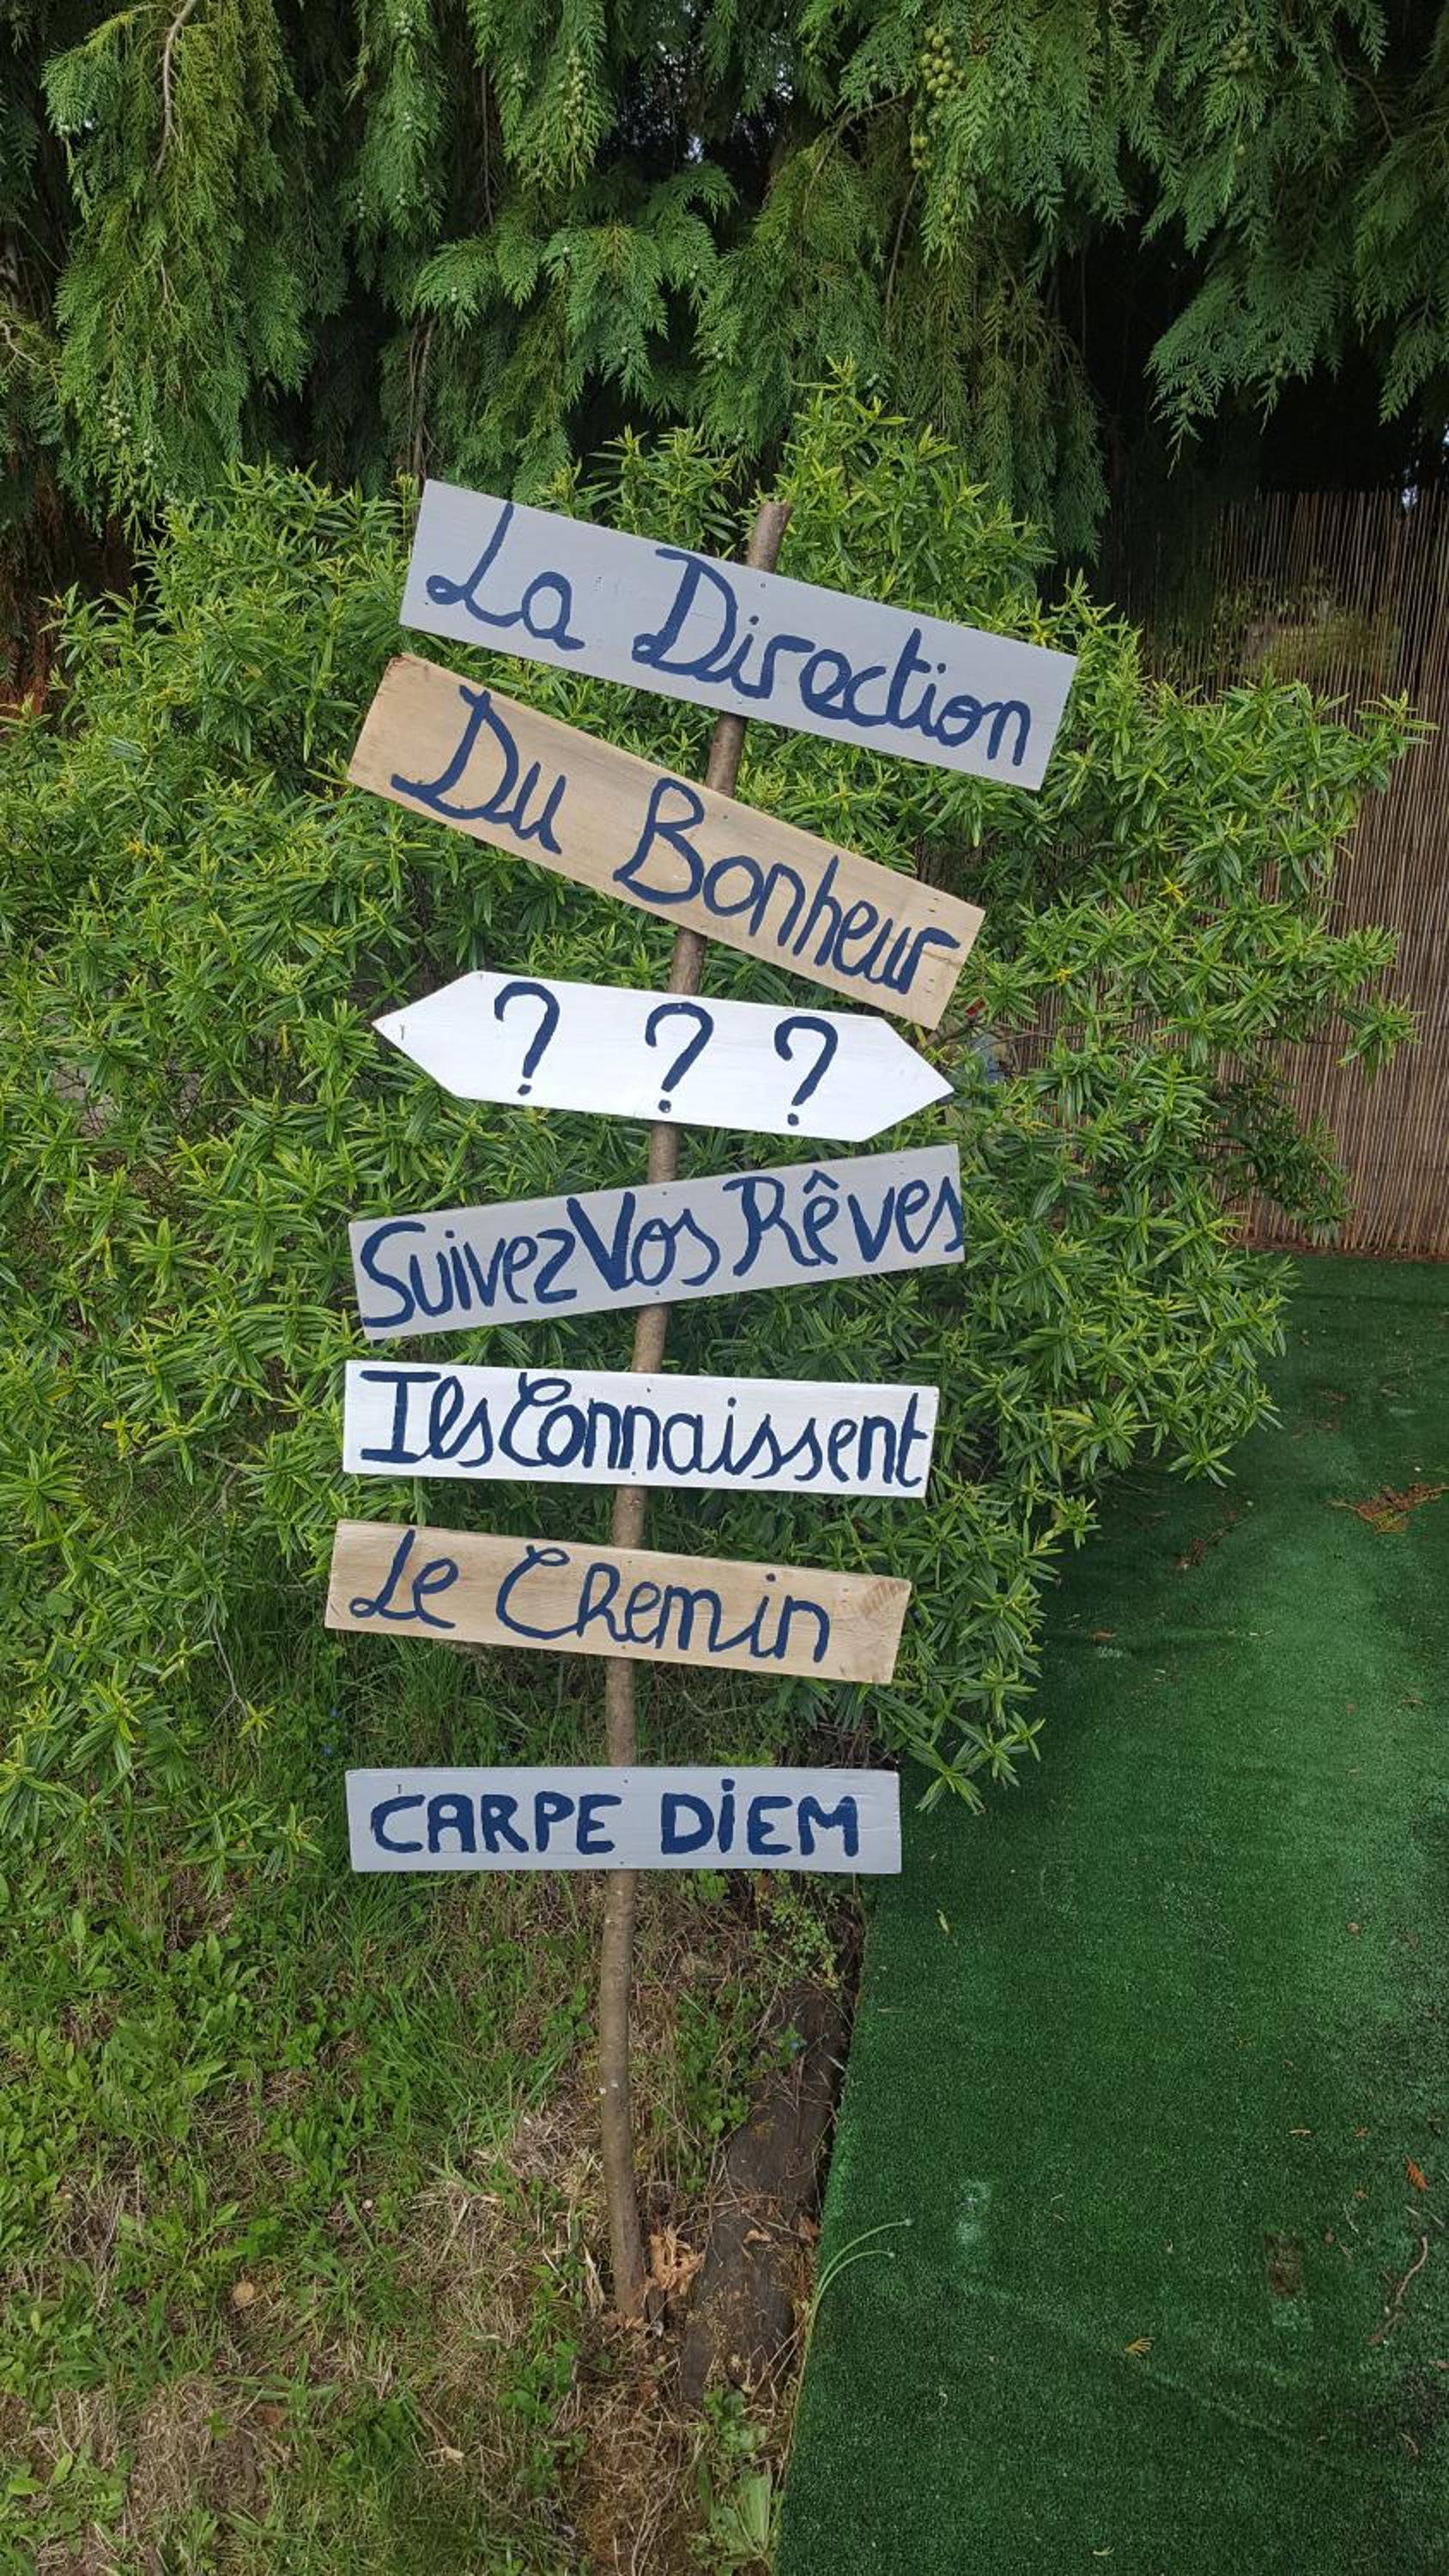 La Direction
Du Bonheur
? ? ?
Suivez Vos Rêves
Ils Connaissent
Le Chemin
CARPE DiEM